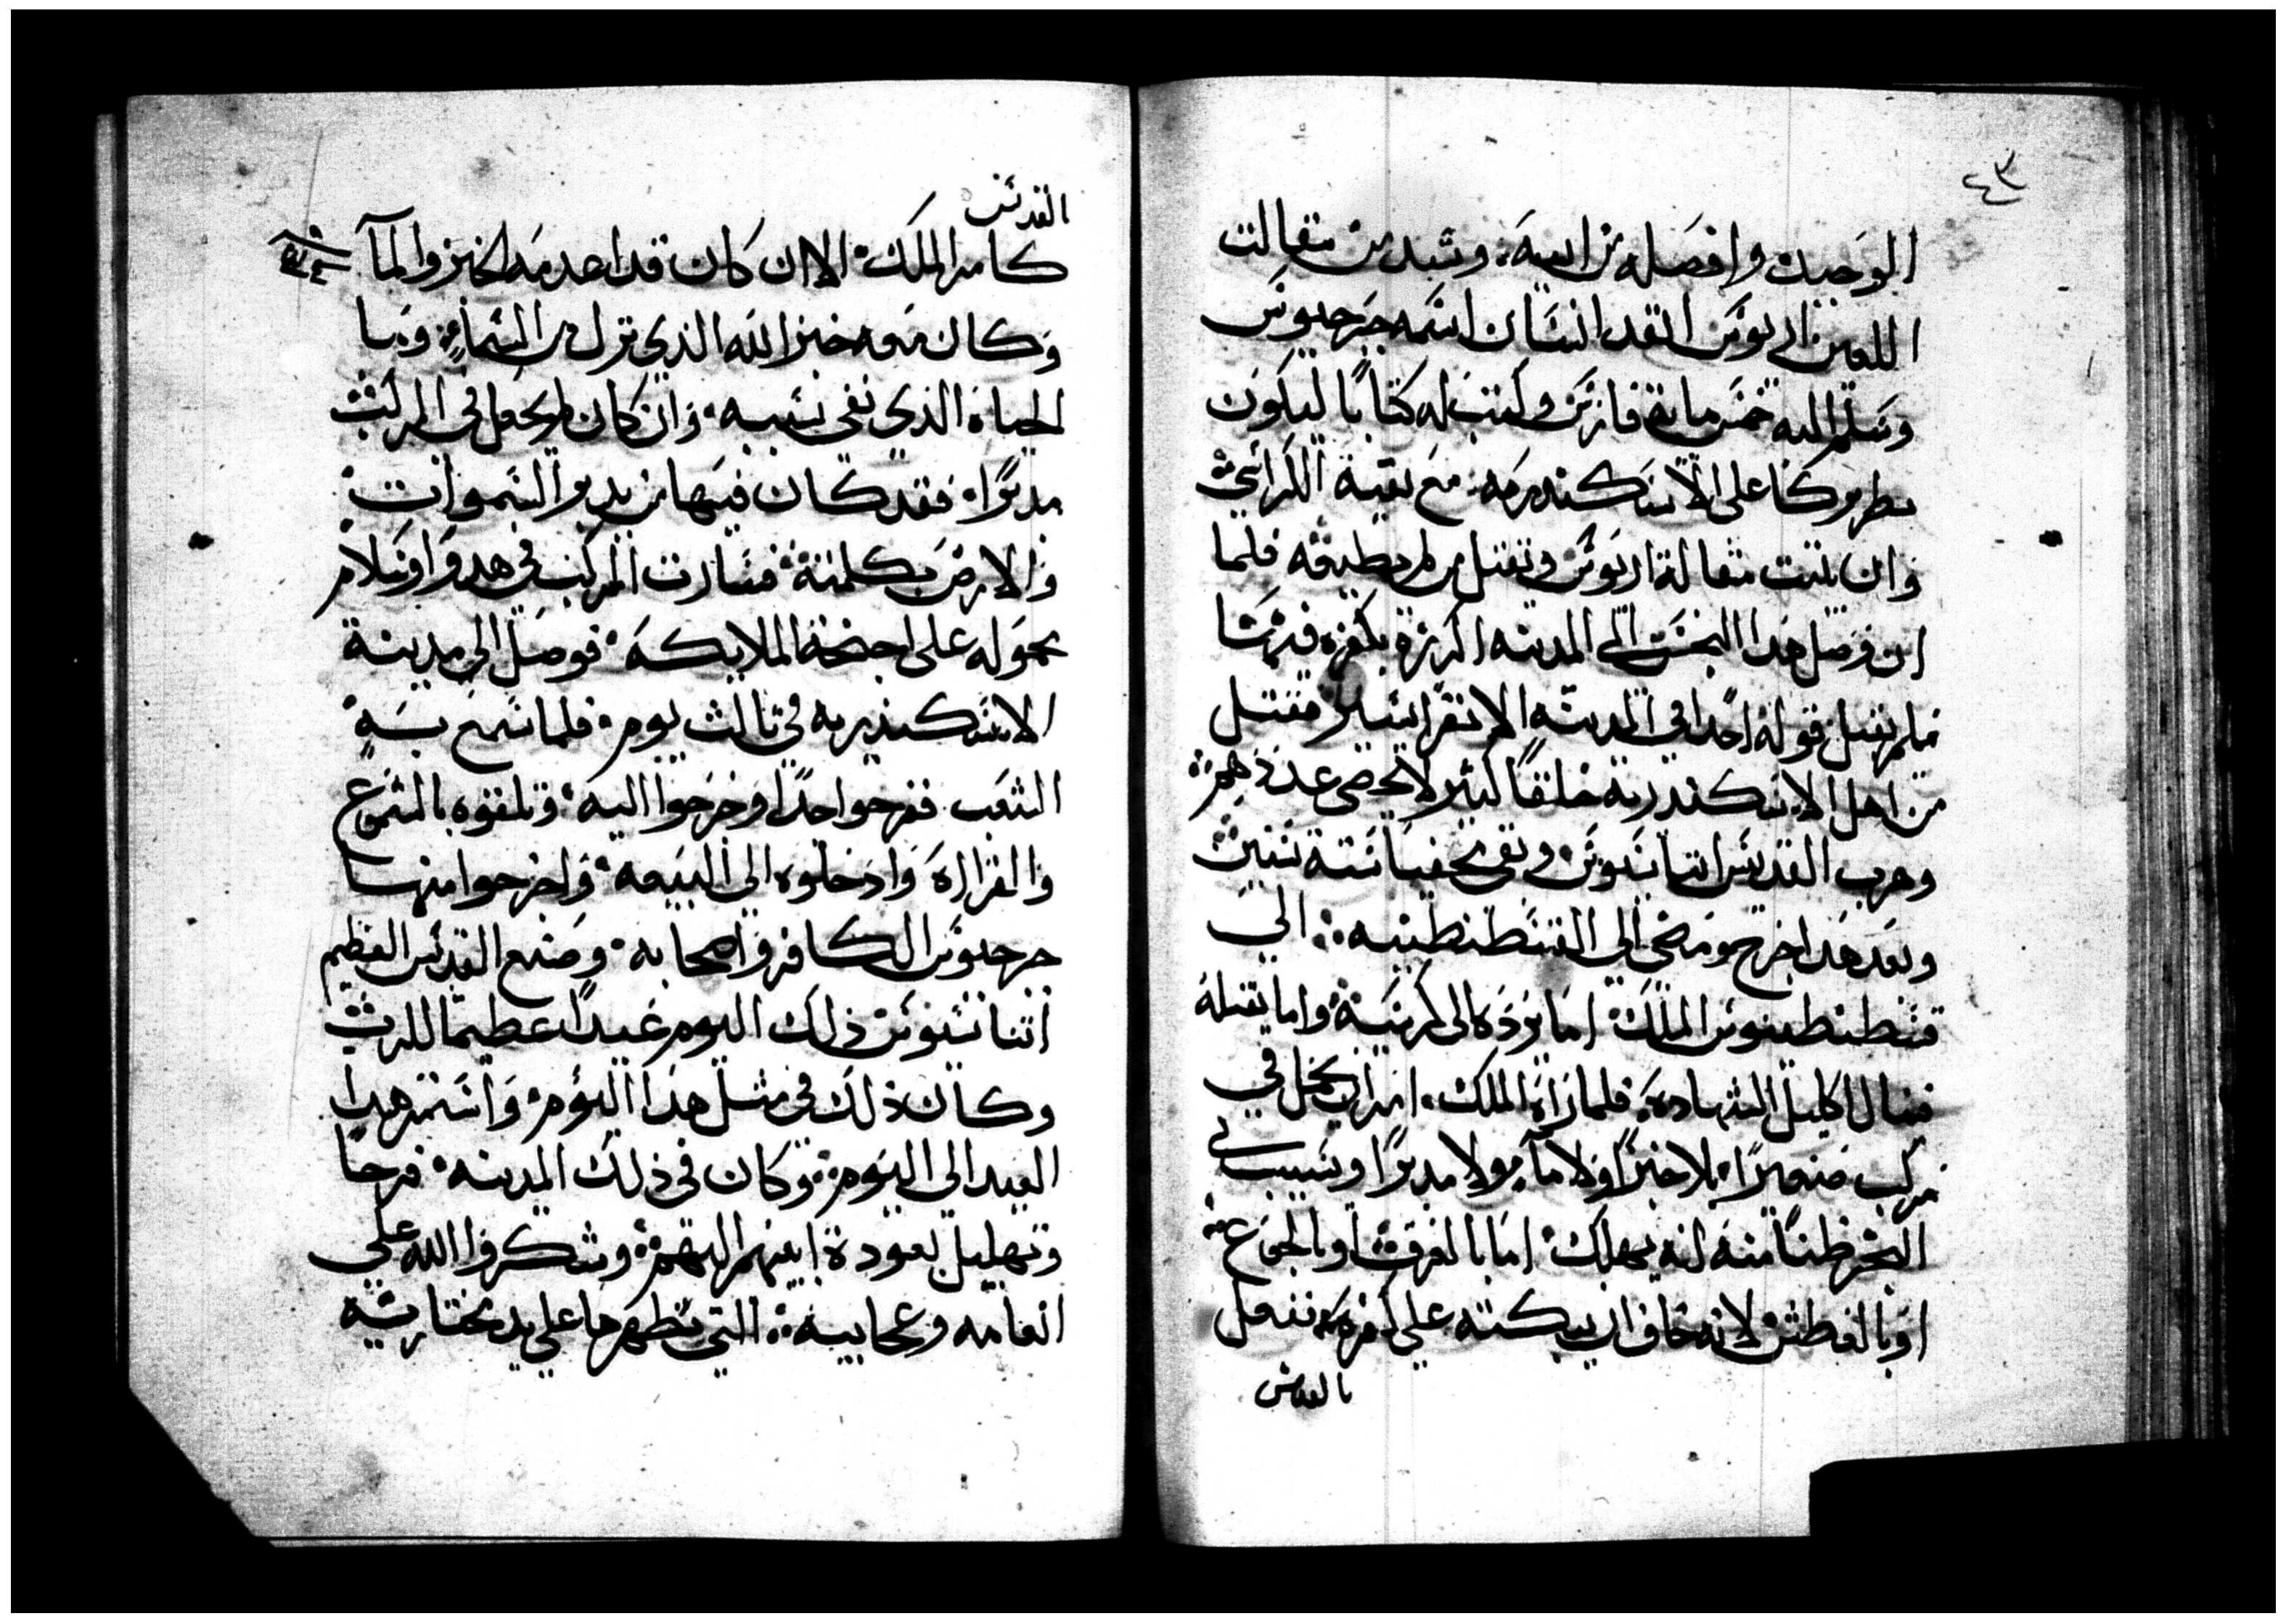 ٤٣
الوحيد وافصله من ابيه، وشيد من مقالت
اللعين اريوس انفد انسان اسمه جرجيوس
وسلم اليه خمس ماية فارس وكتب له كتابًا ليكون
بطريركا على الاسكندريه مع بقية الكراسي
وان يثبت مقالة اريوس ويقتل من لم يطيعه فلما
ان وصل هدا النجس الي المدينه
فلم يقبل قوله احدًا في المدينه الا نفرا يسير فقتل
من اهل الاسكندريه خلقًا كثير لا يحصى عددهم
وهرب القديس اتناسيوس وبقى مختفيا ستة سنين
وبعد هدا خرج ومضى الي القسطنطينيه الى
قسطنطينوس الملك اما يرده الى كرسيه واما يقتله
فينال اكليل الشهاده، فلما راه الملك، امر ان يحمل في
مركب صغيرًا بلا خبزًا ولا مآء ولا مدبرًا ويسيب في
البحر ظنًا منه انه يهلك اما بالغرق او بالجوع
او بالعطش لانه خاف ان يبكته على كفره، ففعل
بالقديس
القديس
كامر الملك الا ان كان قد اعدمه الخبز والمآ
وكان معه خبز الله الدي نزل من السماء وميا
الحياة الذي نفي بسببه وان كان لم يجعل في المركب
مدبرًا فقد كان فيها من يدبر السموات
والارض بكلمته فسارت المركب في هدو وسلام
محموله على اجنحة الملايكه فوصل الى مدينة
الاسكندريه في تالت يوم فلما سمع به
الشعب ففرحوا جدًا وخرجوا اليه وتلقوه بالشموع
والقراراه وادخلوه الى البيعه واخرجوا منها
جرجيوس الكافر واصحابه وصنع القديس العظيم
اتناسيوس ذلك اليوم عيدًا عظيما للرب
وكان ذلك في مثل هدا اليوم واستمر هدا
العيد الى اليوم وكان في ذلك المدينه فرحا
وتهليل بعودة ابيهم اليهم وشكروا الله على
انعامه وعجايبه التي يظهرها على يد مختاريه